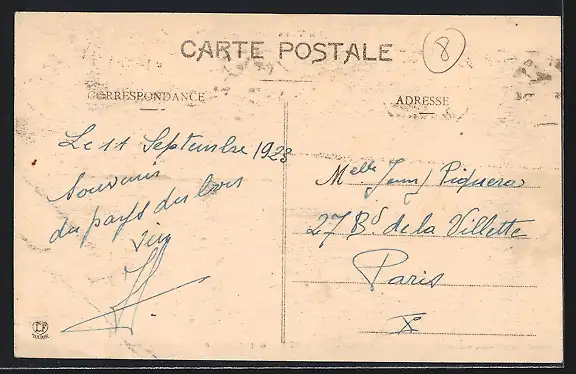 CARTE POSTALE
8
CORRESPONDANCE
ADRESSE
Le 11 Septembre 1923
Souvenir
du pays du bon
vin
Melle Piquera
27 Bd de la Villette
Paris
X
LF